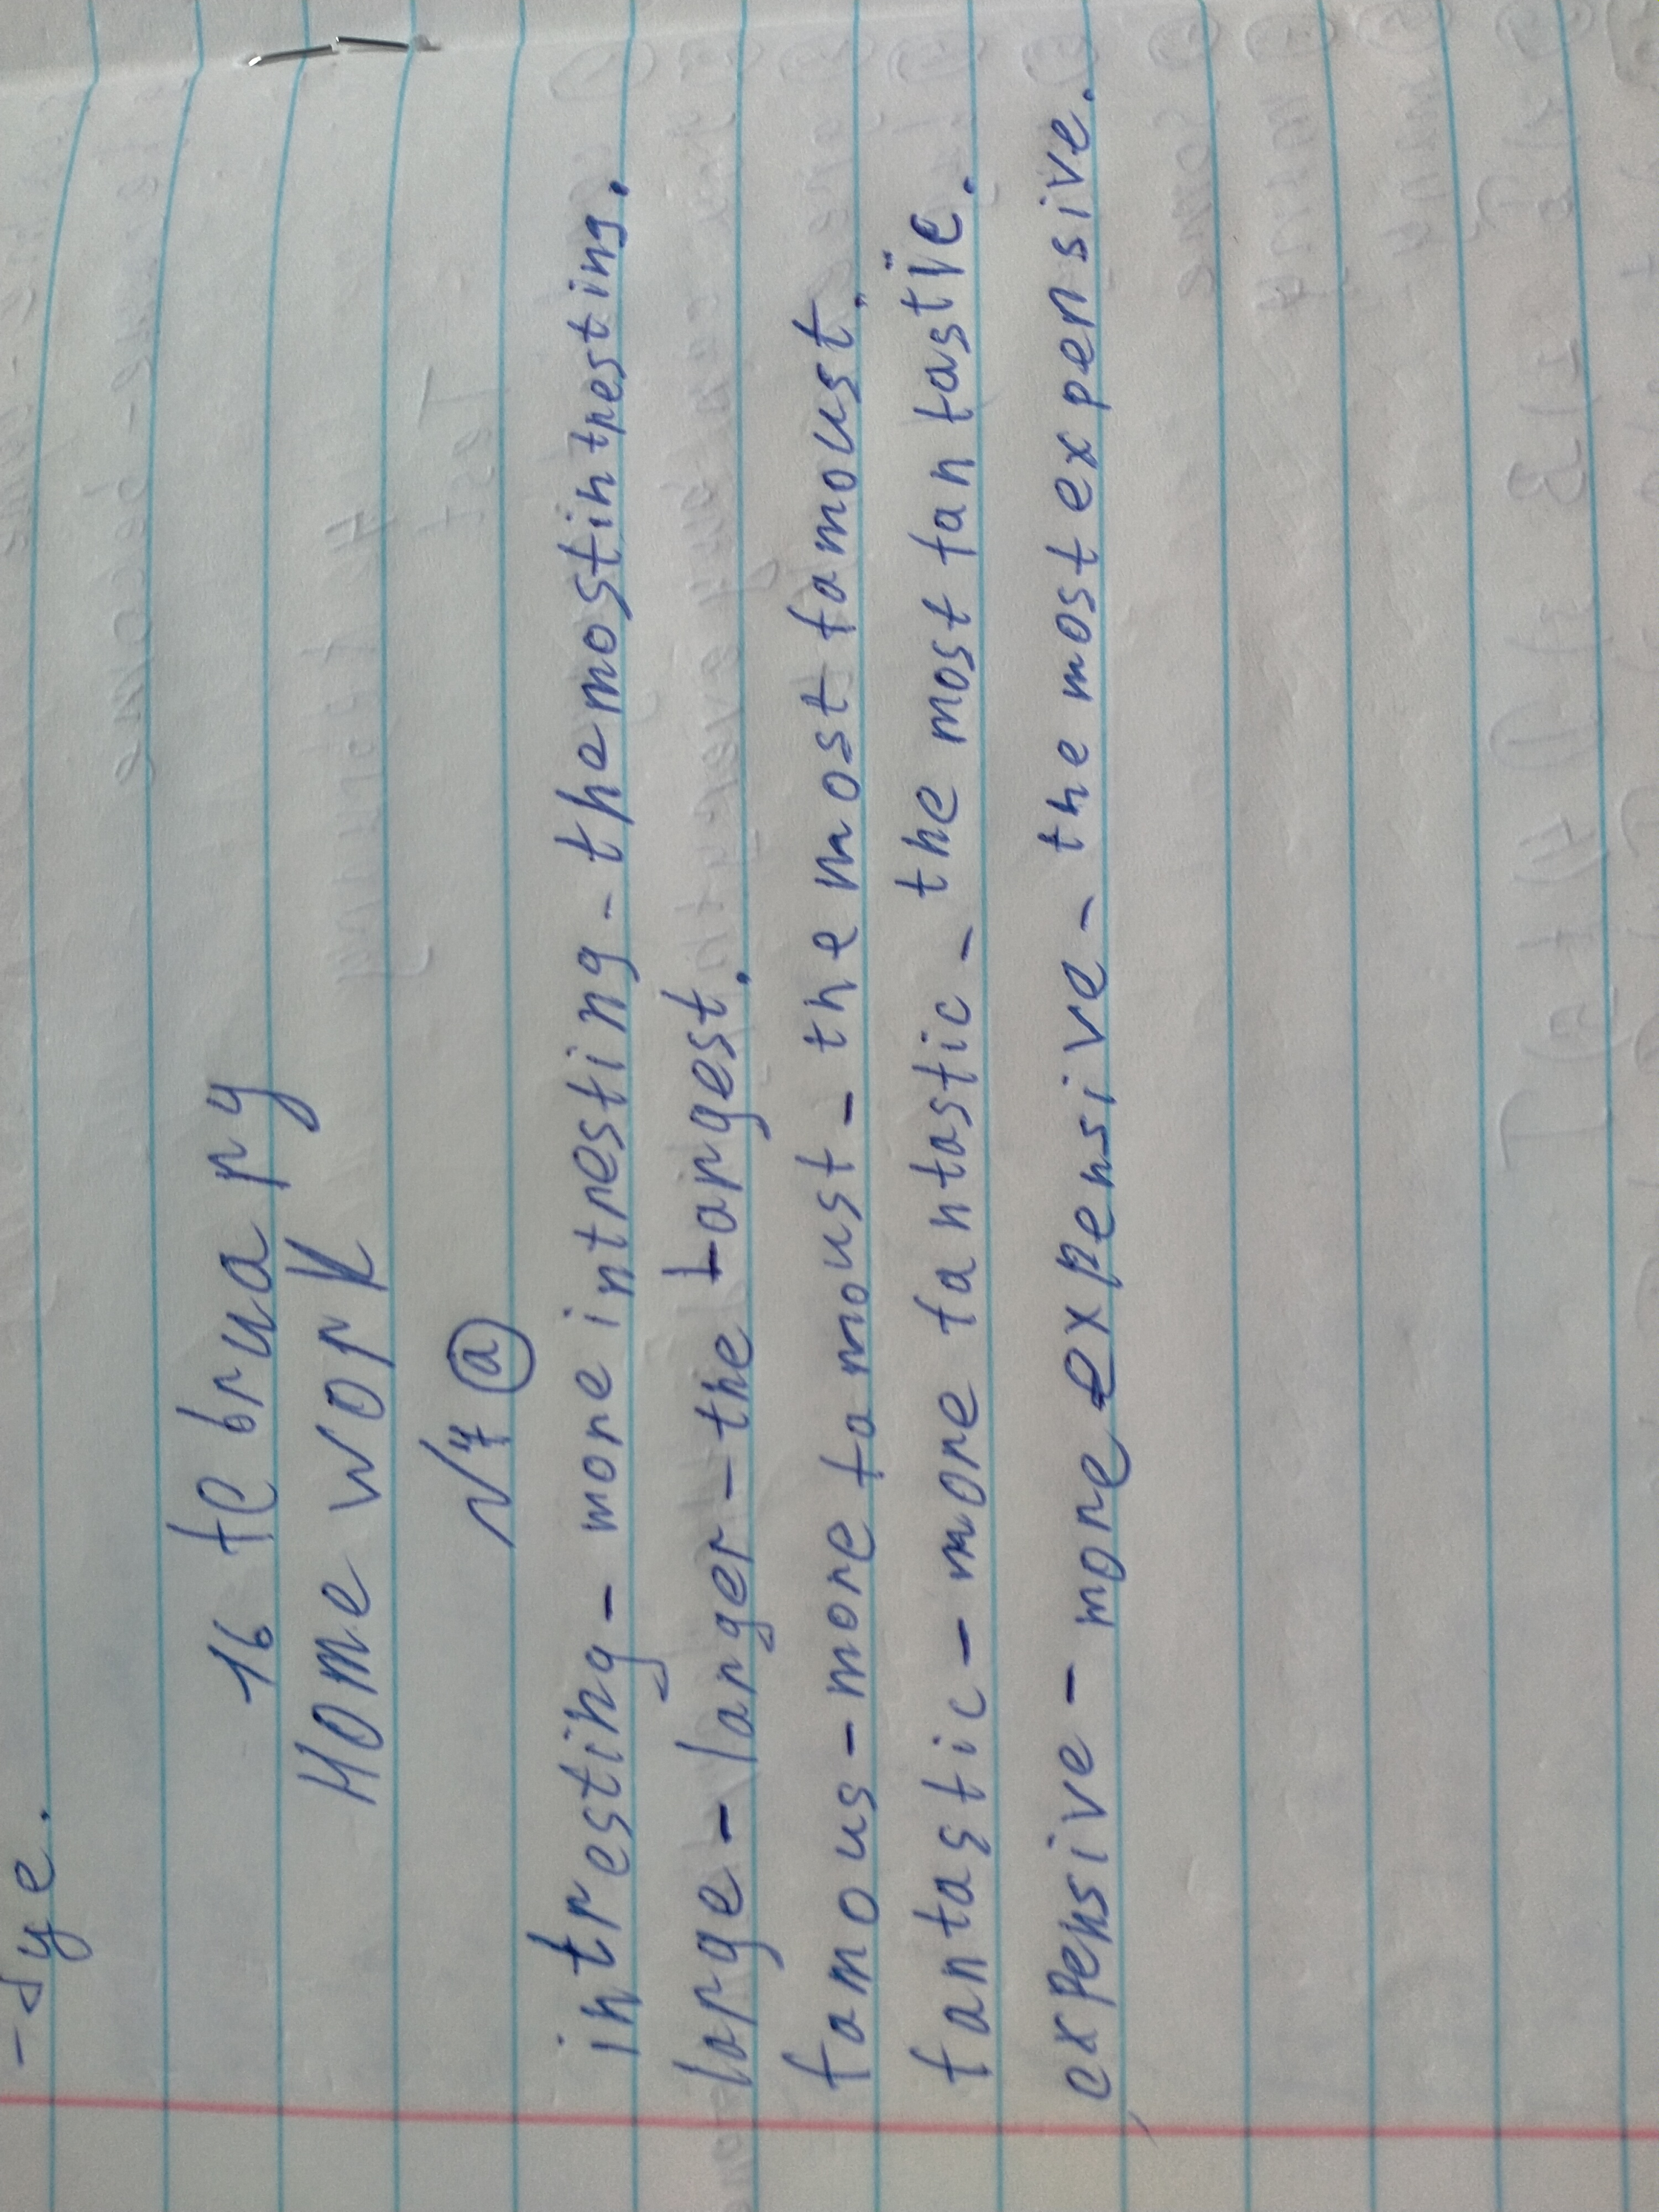 - dye.
16 february
Home work
N7 a
intresting - more intresting - the most intresting.
large - larger - the largest.
famous - more famoust - the most famoust.
fantastic - more fantastic - the most fantastic.
expensive - more expensive - the most expensive.